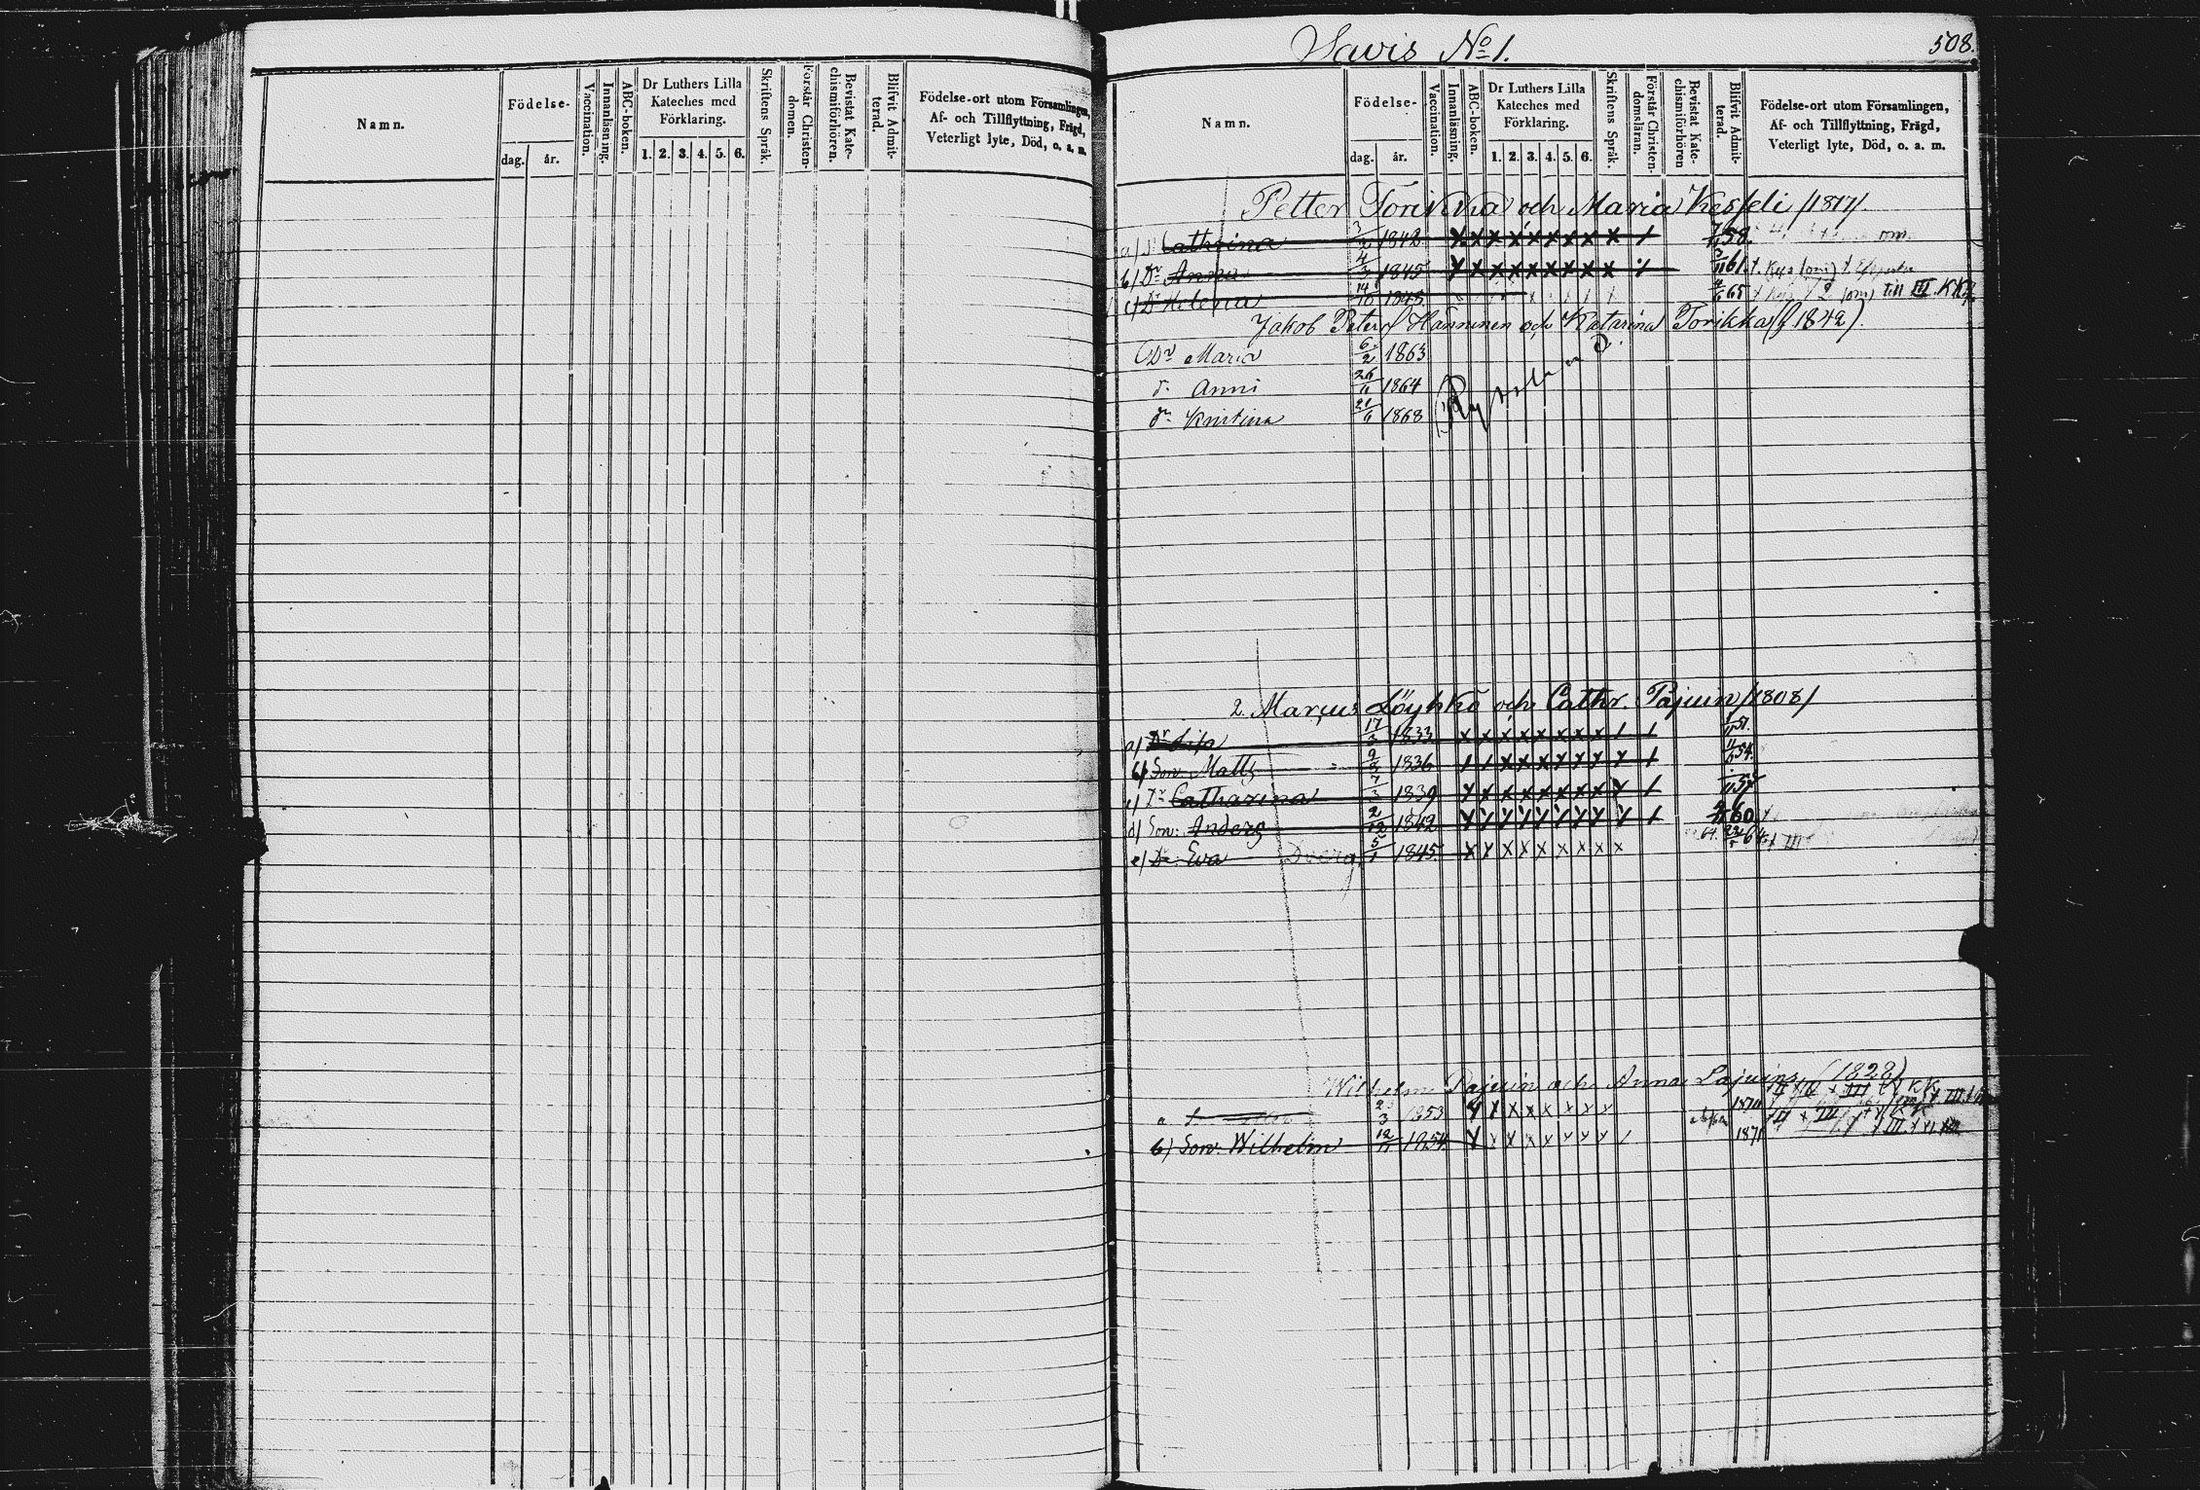 Namn.
Födelse-
dag. år.
Vaccination.
Innanläsning.
ABC-boken.
Dr Luthers Lilla
Kateches med
Förklaring.
1. 2. 3. 4. 5. 6.
Skriftens Språk.
Förstår Christen-
domen.
Bevistat Kate-
chismiförhören.
Blifvit Admit-
terad.
Födelse-ort utom Församlingen,
Af- och Tillflyttning, Frägd,
Veterligt lyte, Död, o. a. m.
Savis No 1.
508.
Namn.
Födelse-
dag. år.
Vaccination.
Innanläsning.
ABC-boken.
Dr Luthers Lilla
Kateches med
Förklaring.
1. 2. 3. 4. 5. 6.
Skriftens Språk.
Förstår Christen-
domsläran.
Bevistat Kate-
chismiförhören
Blifvit Admit-
terad.
Födelse-ort utom Församlingen,
Af- och Tillflyttning, Frägd,
Veterligt lyte, Död, o. a. m.
Petter Torikka och Maria Kesseli /1817/.
a) Cathrina 1842 x x x x x x x x x / 58.
b) Dr Anna 4/3 1845 x x x x x x x x x 61.
c) Dr Helena 14/10 1845 65 till III. KKb
Jakob Peters Hänninen och Katarina Torikka (f 1842).
Dr Maria 6/2 1863
d. Anni 26/11 1864
dr Kristina 21/6 1868
2. Marcus Löyhkö och Cathr. Pajuin /1808/
a) Dr Lisa 17/3 1833 x x x x x x x x / / 51.
b) Son Matts 9/3 1836 / / x x x x x x x / 54.
c) Dr Catharina 7/3 1839 x x x x x x x x x / 57
d) Son: Anders 2/12 1842 x x x x x x x x x / 60
e) Dr Eva Dverg 5/1 1845 x x x x x x x x x
Wilhelm Pajuin och Anna Pajuin (1828)
a 2/3 1853 x x x x x x x x 1870
b) Son: Wilhelm 12/11 1854 x x x x x x x x / 1871